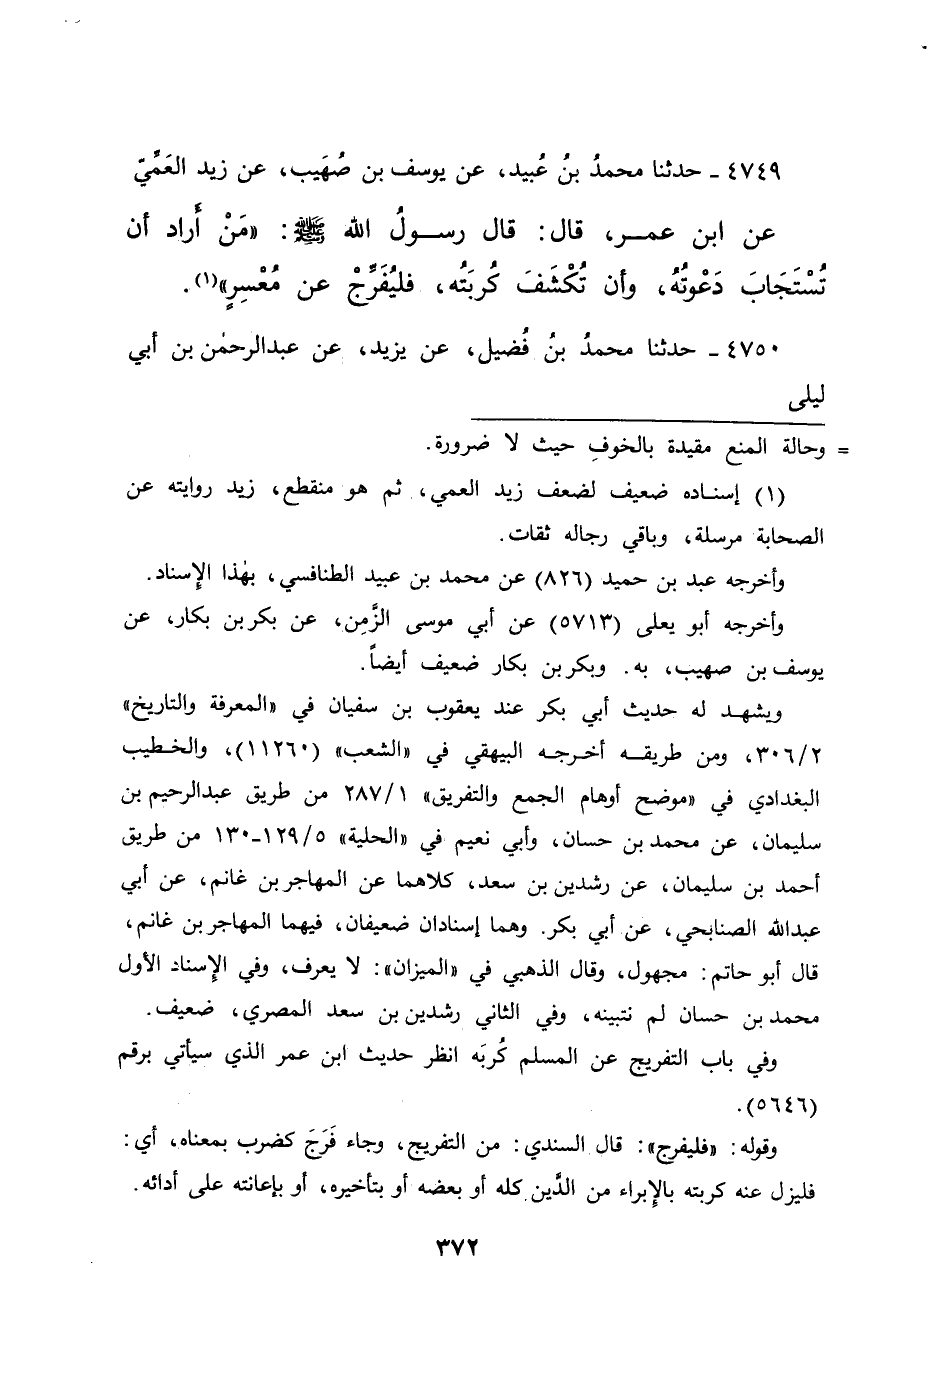 ٤٧٤٩ ـ حدثنا محمدُ بنُ عُبيد، عن يوسف بن صُهَيب، عن زيد العَمِّيِّ
عن ابن عمـر، قال: قال رسـولُ الله ﷺ: «مَنْ أَراد أن
تُسْتَجَابَ دَعْوتُهُ، وأن تُكْشَفَ كُربَتُه، فليُفَرِّجْ عن مُعْسِرٍ»(١).
٤٧٥٠ ـ حدثنا محمدُ بنُ فُضيل، عن يزيد، عن عبدالرحمٰن بن أبي
ليلى
= وحالة المنع مقيدة بالخوفِ حيث لا ضرورة.
(١) إسنـاده ضعيف لضعف زيد العمي، ثم هو منقطع، زيد روايته عن
الصحابة مرسلة، وباقي رجاله ثقات.
وأخرجه عبد بن حميد (٨٢٦) عن محمد بن عبيد الطنافسي، بهٰذا الإِسناد.
وأخرجه أبو يعلى (٥٧١٣) عن أبي موسى الزَّمِن، عن بكر بن بكار، عن
يوسف بن صهيب، به. وبكر بن بكار ضعيف أيضاً.
ويشهـد له حديث أبي بكر عند يعقوب بن سفيان في «المعرفة والتاريخ»
٣٠٦/٢، ومن طريقـه أخـرجـه البيهقي في «الشعب» (١١٢٦٠)، والخـطيب
البغدادي في «موضح أوهام الجمع والتفريق» ٢٨٧/١ من طريق عبدالرحيم بن
سليمان، عن محمد بن حسان، وأبي نعيم في «الحلية» ١٢٩/٥ـ١٣٠ من طريق
أحمد بن سليمان، عن رشدين بن سعد، كلاهما عن المهاجر بن غانم، عن أبي
عبدالله الصنابحي، عن أبي بكر. وهما إسنادان ضعيفان، فيهما المهاجر بن غانم،
قال أبو حاتم: مجهول، وقال الذهبي في «الميزان»: لا يعرف، وفي الإِسناد الأول
محمد بن حسان لم نتبينه، وفي الثاني رشدين بن سعد المصري، ضعيف.
وفي باب التفريج عن المسلم كُربَه انظر حديث ابن عمر الذي سيأتي برقم
(٥٦٤٦).
وقوله: «فليفرج»: قال السندي: من التفريج، وجاء فَرَجَ كضرب بمعناه، أي:
فليزل عنه كربته بالإِبراء من الدَّين كله أو بعضه أو بتأخيره، أو بإعانته على أدائه.
٣٧٢